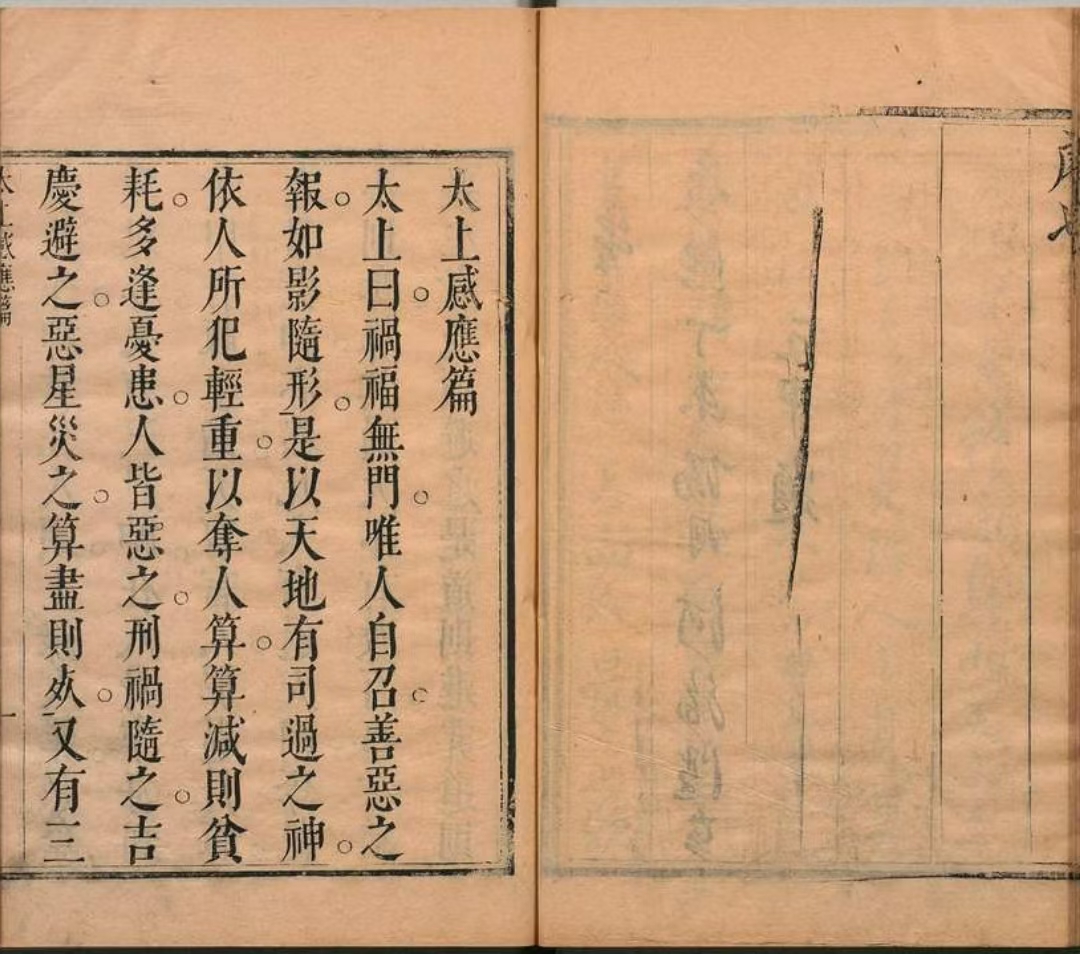 太上感應篇
太上曰禍福無門唯人自召善惡之
報如影隨形是以天地有司過之神
依人所犯輕重以奪人算算減則貧
耗多逢憂患人皆惡之刑禍隨之吉
慶避之惡星災之算盡則死又有三
太上感應篇
一